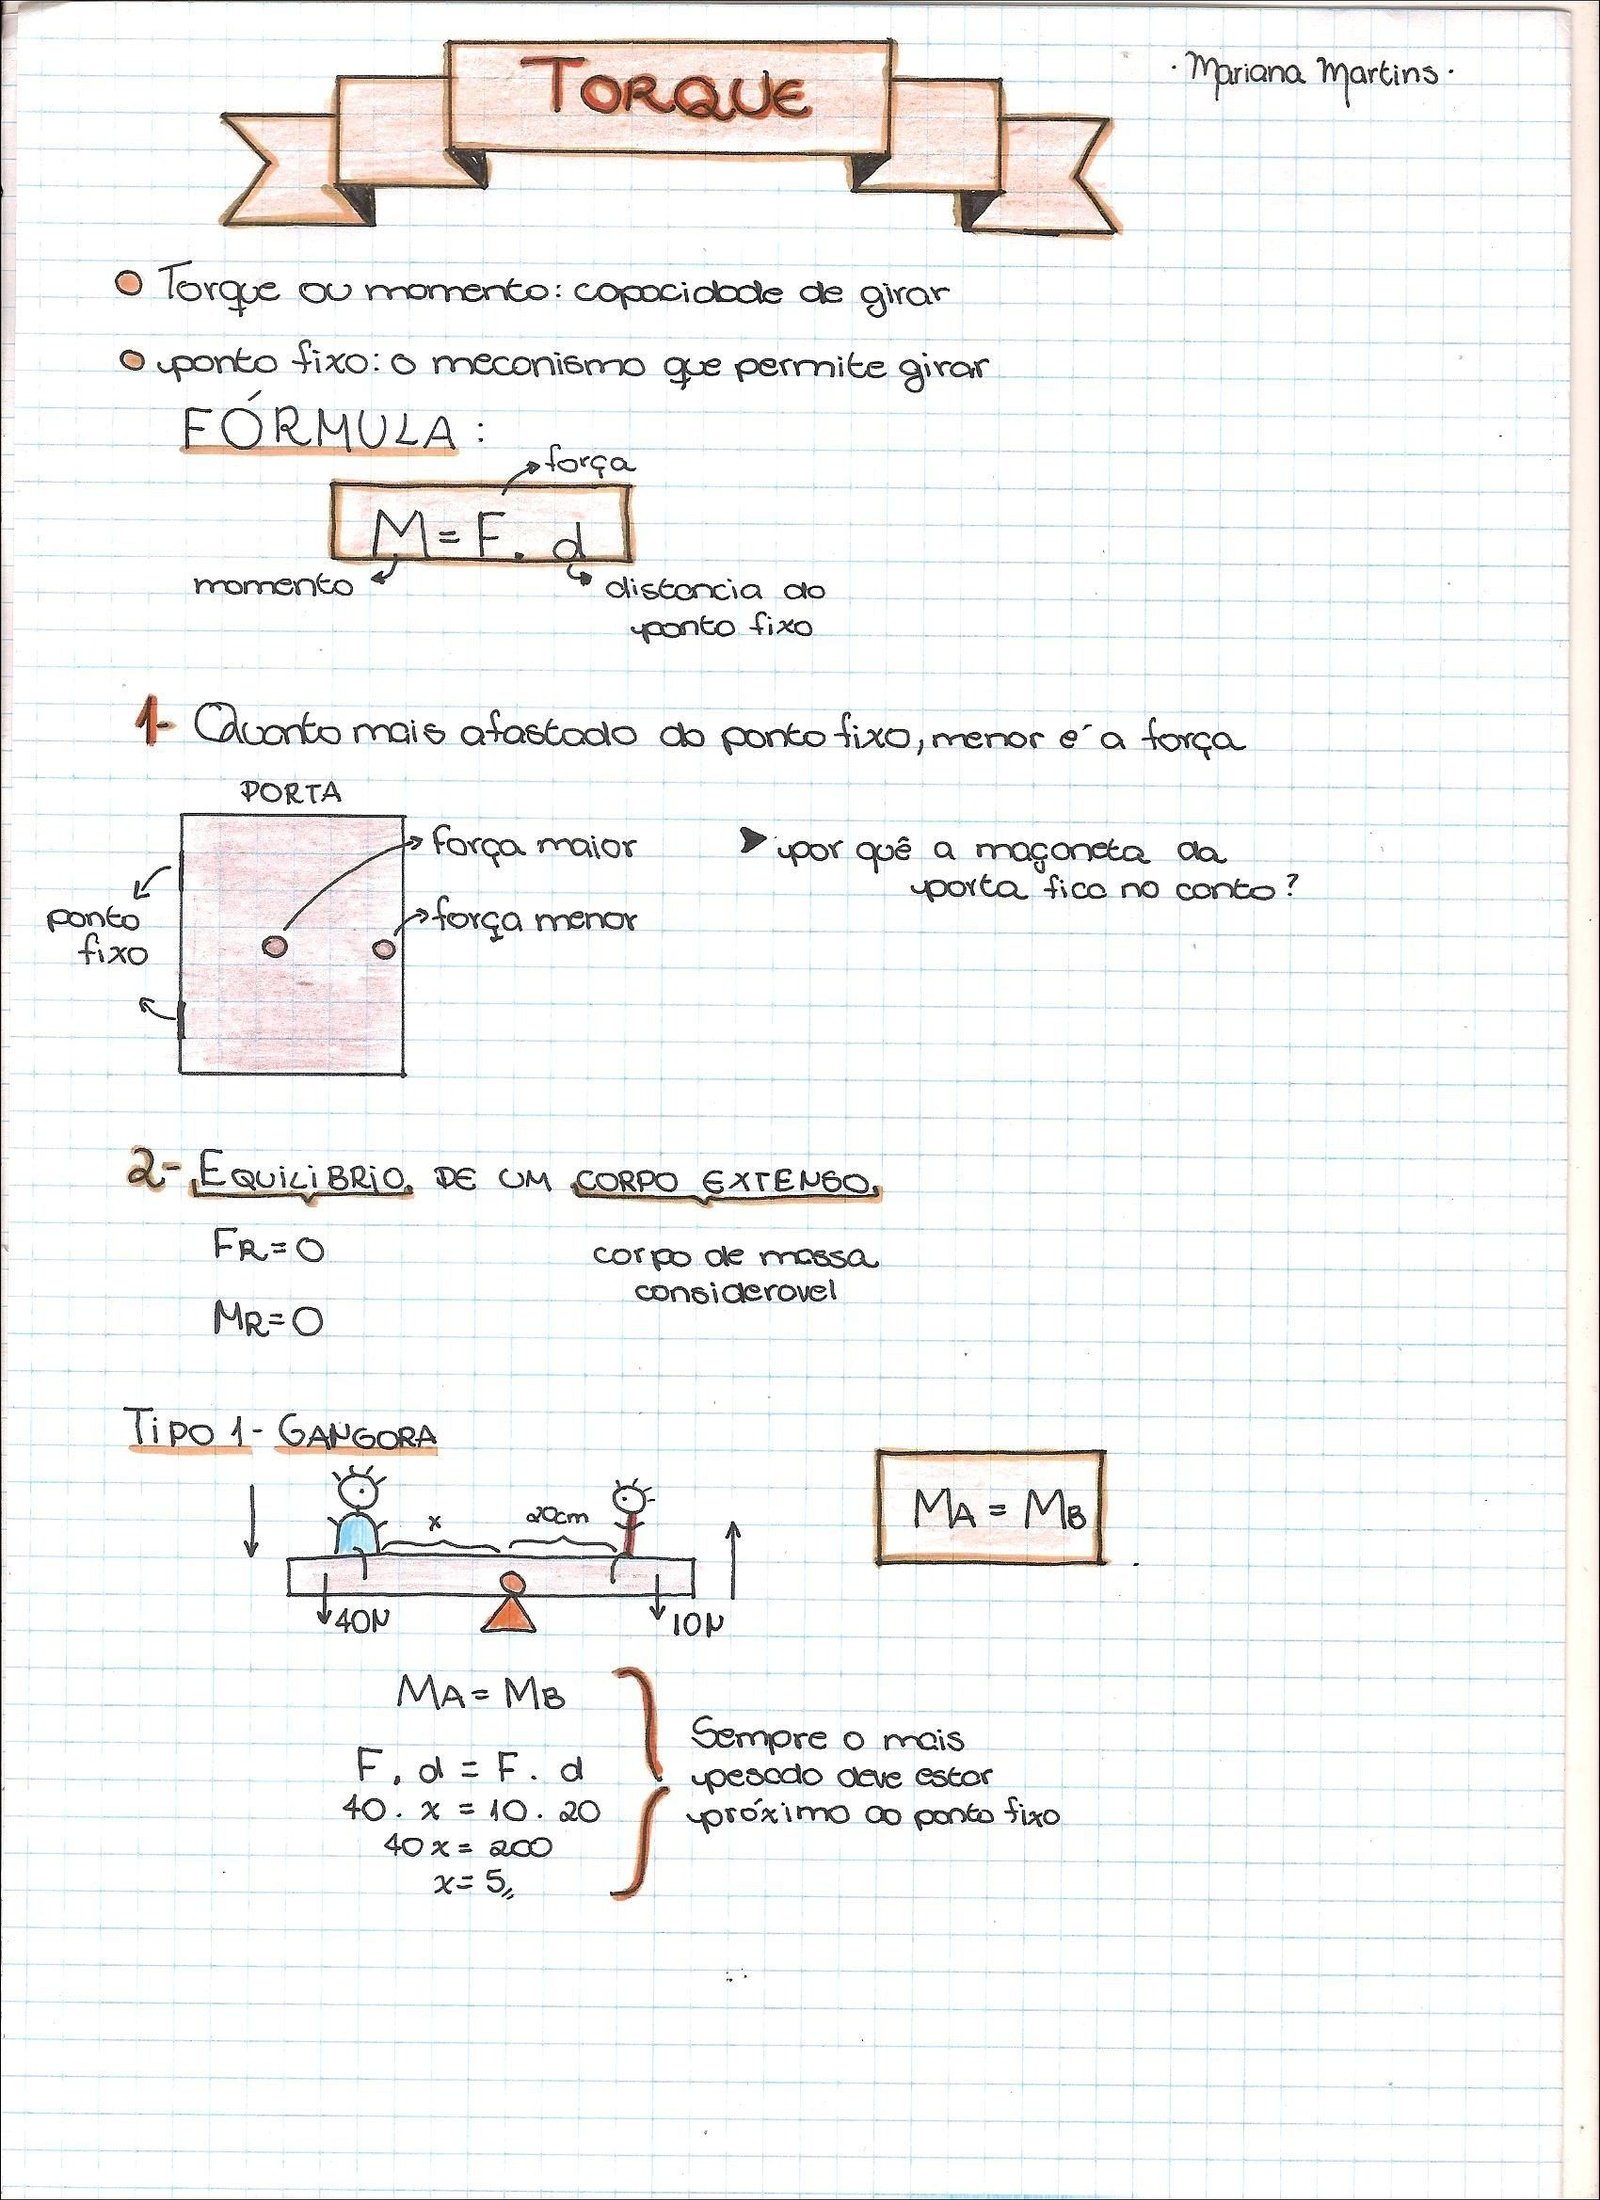 TORQUE
· Mariana Martins ·
Torque ou momento: capacidade de girar
ponto fixo: o mecanismo que permite girar
FÓRMULA:
força
M = F . d
momento
distancia do
ponto fixo
1- Quanto mais afastado do ponto fixo, menor é a força
PORTA
força maior
força menor
ponto
fixo
por quê a maçaneta da
porta fica no canto?
2- EQUILIBRIO DE UM CORPO EXTENSO
FR = 0
corpo de massa
consideravel
MR = 0
TIPO 1- GANGORA
x
20cm
40N
10N
MA = MB
MA = MB
F . d = F . d
40 . x = 10 . 20
40x = 200
x = 5
Sempre o mais
pesado deve estar
próximo ao ponto fixo